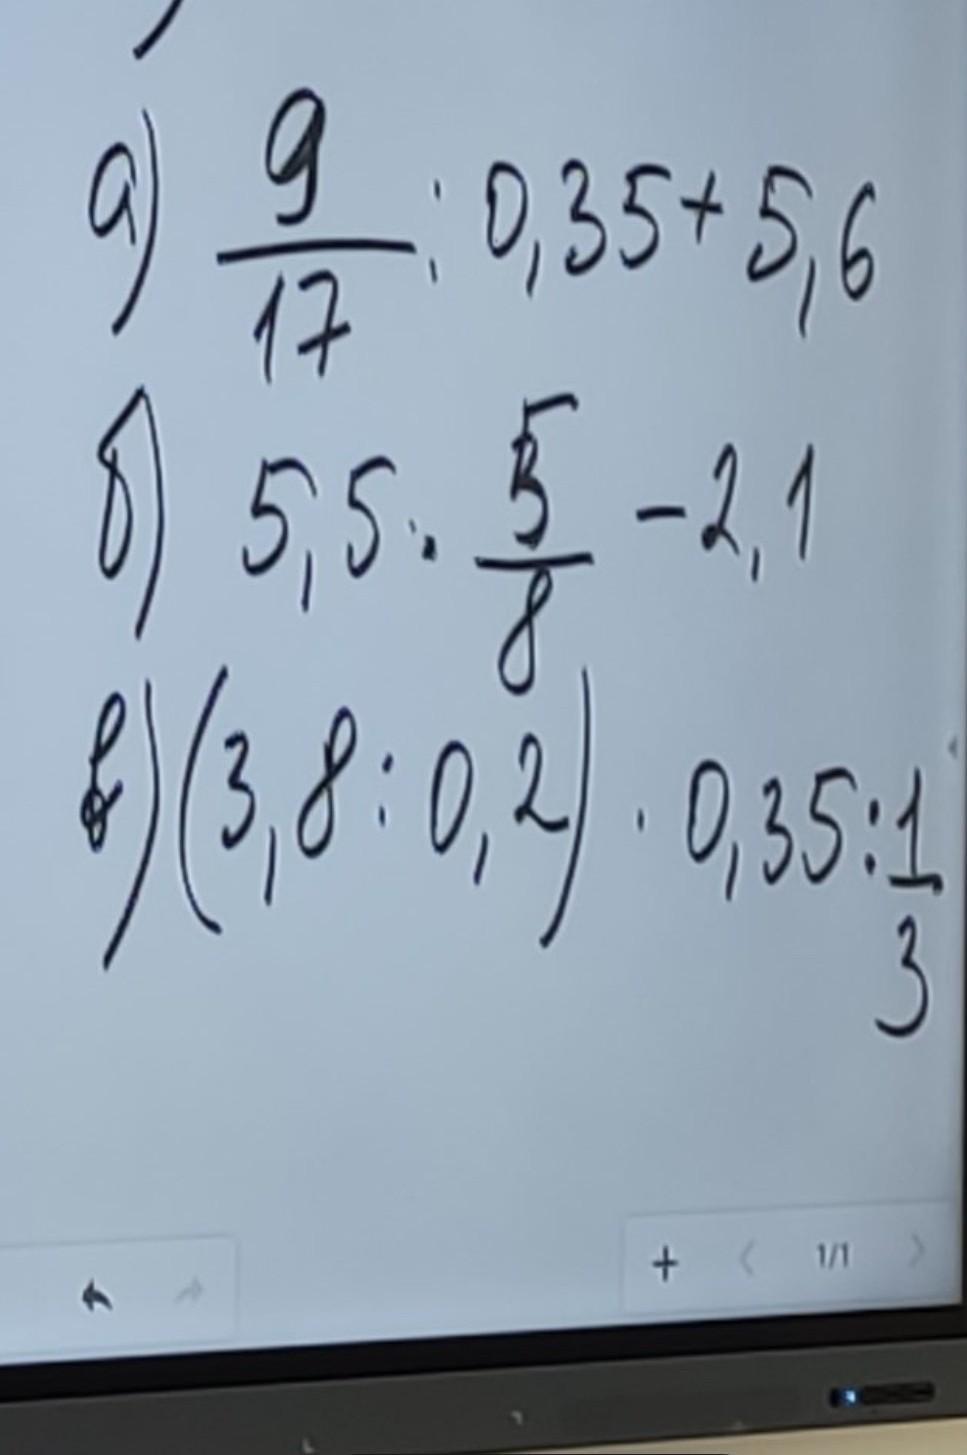 а) 9/17 : 0,35 + 5,6
б) 5,5 · 5/8 - 2,1
в) (3,8 : 0,2) · 0,35 : 1/3
+ < 1/1 >